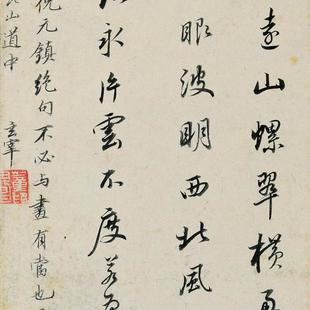 遠山螺翠橫
眼波明西北風
永片雲不度若為
倪元鎮絕句不必与畫有當也
山道中
玄宰